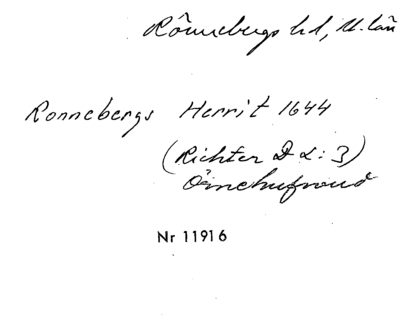 Rönnebergs hd, M. län
Ronnebergs Herrit 1644
(Richter D L: 3)
Nr 11916